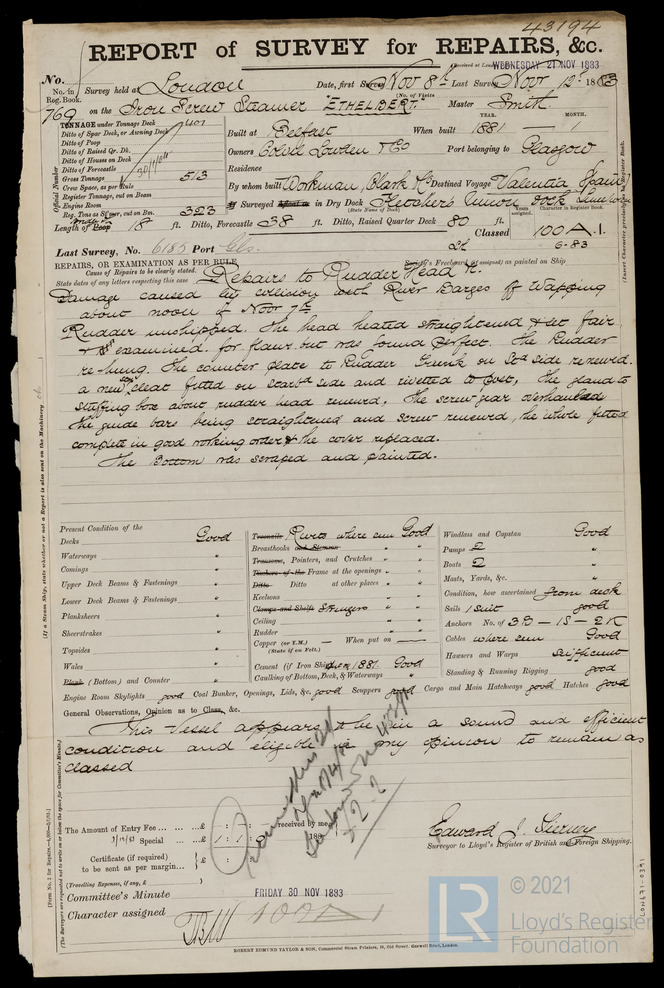 43194
REPORT of SURVEY for REPAIRS, &c.
Received at London WEDNESDAY 21 NOV 1883
No.
No. in Reg. Book.
769
Survey held at London Date, first Survey Nov 8th Last Survey Nov 12th 1883
(No. of Visits
on the Iron Screw Steamer ETHELBERT. Master Smith
TONNAGE under Tonnage Deck 401
Ditto of Spar Deck, or Awning Deck
Ditto of Poop
Ditto of Raised Qr. Dk.
Ditto of Houses on Deck
Ditto of Forecastle
Gross Tonnage 513
Crew Space, as per Rule
Register Tonnage, cut on Beam
Engine Room
Reg. Tons as Steamer, cut on Bm. 323
Built at Belfast When built YEAR. 1881 MONTH. 1
Owners Colvil Lowden & Co Port belonging to Glasgow
Residence
By whom built Workman, Clark & Co Destined Voyage Valentia Spain
If Surveyed Afloat or in Dry Dock Fletchers Union Dock Limehouse
(State Name of Dock.)
Length of Poop 18 ft. Ditto, Forecastle 38 ft. Ditto, Raised Quarter Deck 80 ft.
Classed 100 A.1.
6-83
Years assigned.
Character in Register Book.
Last Survey, No. 6185 Port Gls.
REPAIRS, OR EXAMINATION AS PER RULE
Society's Freeboard (if assigned) as painted on Ship
Cause of Repairs to be clearly stated.
State dates of any letters respecting this case
Repairs to Rudder Head &c.
Damage caused by collision with River Barges off Wapping
about noon of Novr 7th
Rudder unshipped. The head heated straightened & set fair,
& examined for flaws but was found perfect. The Rudder
re-hung. The counter plate to Rudder Trunk on Std side renewed.
a new cleat fitted on Starbd side and rivetted to post, the gland to
stuffing box about rudder head renewed. The screw gear overhauled
the guide bars being straightened and screw renewed, the whole fitted
complete in good working order & the cover replaced.
The Bottom was scraped and painted.
Present Condition of the
Decks Good
Waterways "
Comings "
Upper Deck Beams & Fastenings "
Lower Deck Beams & Fastenings "
Planksheers "
Sheerstrakes "
Topsides "
Wales "
Plank (Bottom) and Counter "
Treenails Rivets where seen Good
Breasthooks and Stemson " "
Transoms, Pointers, and Crutches " "
Timbers of the Frame at the openings " "
Ditto Ditto at other places " "
Keelsons " "
Clamps and Shelfs Stringers " "
Ceiling " "
Rudder " "
Copper (or Y.M.) — When put on —
(State if on Felt.)
Cement (if Iron Ship) seen 1881 Good
Caulking of Bottom, Deck, & Waterways "
Windlass and Capstan Good
Pumps 2 "
Boats 2 "
Masts, Yards, &c. "
Condition, how ascertained from deck
Sails 1 suit good
Anchors No. of 3B - 1S - 2K
Cables where seen Good
Hawsers and Warps sufficient
Standing & Running Rigging good
Engine Room Skylights good Coal Bunker, Openings, Lids, &c. good Scuppers good Cargo and Main Hatchways good Hatches good
General Observations, Opinion as to Class, &c.
This Vessel appears to be in a sound and efficient
condition and eligible in my opinion to remain as
classed
The Amount of Entry Fee ... ... ... £ : : received by me,
Special ... £ 1 : 1 : 188
Certificate (if required) to be sent as per margin ... £
(Travelling Expenses, if any, £ )
Edward J.
Surveyor to Lloyd's Register of British and Foreign Shipping.
Committee's Minute FRIDAY 30 NOV 1883
Character assigned 100 A 1
ROBERT EDMUND TAYLOR & SON, Commercial Steam Printers, 19, Old Street, Goswell Road, London.
(If a Steam Ship, state whether or not a Report is also sent on the Machinery
(The Surveyors are requested not to write on or below the space for Committee's Minute)
LR
© 2021
Lloyd's Register
Foundation
LON471-0391